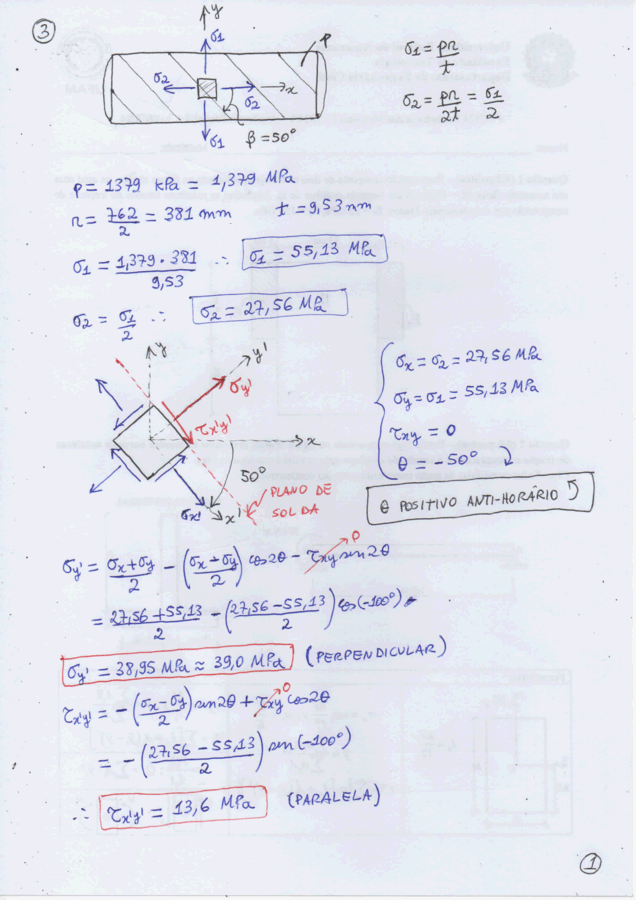 3
y
σ1
p
σ1 = pr/t
σ2
x
σ2
σ2 = pr/2t = σ1/2
σ1
β = 50°
p = 1379 kPa = 1,379 MPa
r = 762/2 = 381 mm t = 9,53 mm
σ1 = 1,379 · 381/9,53 ∴ σ1 = 55,13 MPa
σ2 = σ1/2 ∴ σ2 = 27,56 MPa
y
y'
σy'
τx'y'
x
50°
σx'
x'
PLANO DE
SOLDA
σx = σ2 = 27,56 MPa
σy = σ1 = 55,13 MPa
τxy = 0
θ = -50°
θ POSITIVO ANTI-HORÁRIO
σy' = (σx + σy)/2 - ((σx - σy)/2) cos 2θ - τxy sen 2θ 0
= (27,56 + 55,13)/2 - ((27,56 - 55,13)/2) cos(-100°)
σy' = 38,95 MPa ≈ 39,0 MPa (PERPENDICULAR)
τx'y' = - ((σx - σy)/2) sen 2θ + τxy cos 2θ 0
= - ((27,56 - 55,13)/2) sen (-100°)
∴ τx'y' = 13,6 MPa (PARALELA)
1